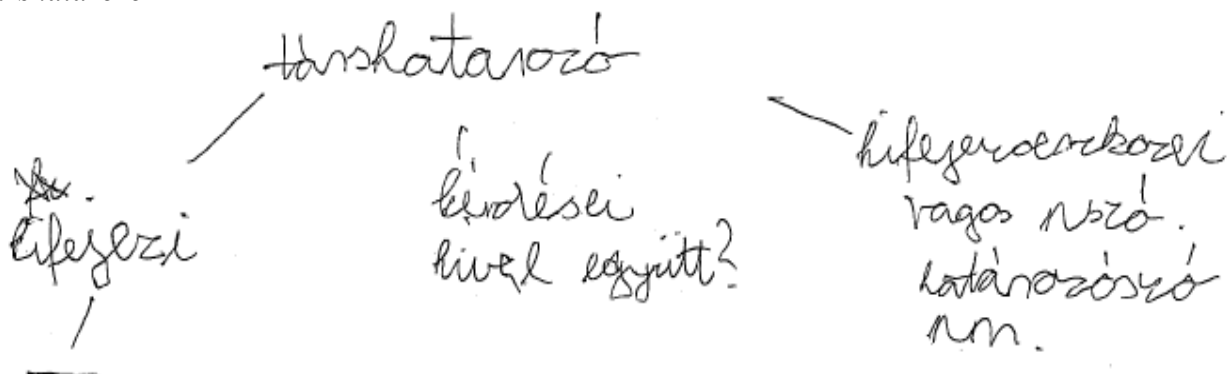 társhatározó
kifejezi
kérdései
kivel együtt?
kifejezőeszközei
ragos nszó.
határozószó
nm.